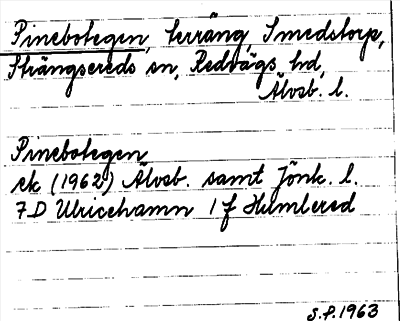 Pinebotegen, terräng, Smedstorp,
Strängsereds sn, Redvägs hd,
Älvsb. l.
Pinebotegen
ek (1962) Älvsb. samt Jönk. l.
7D Ulricehamn 1f Humlered
S.P. 1963